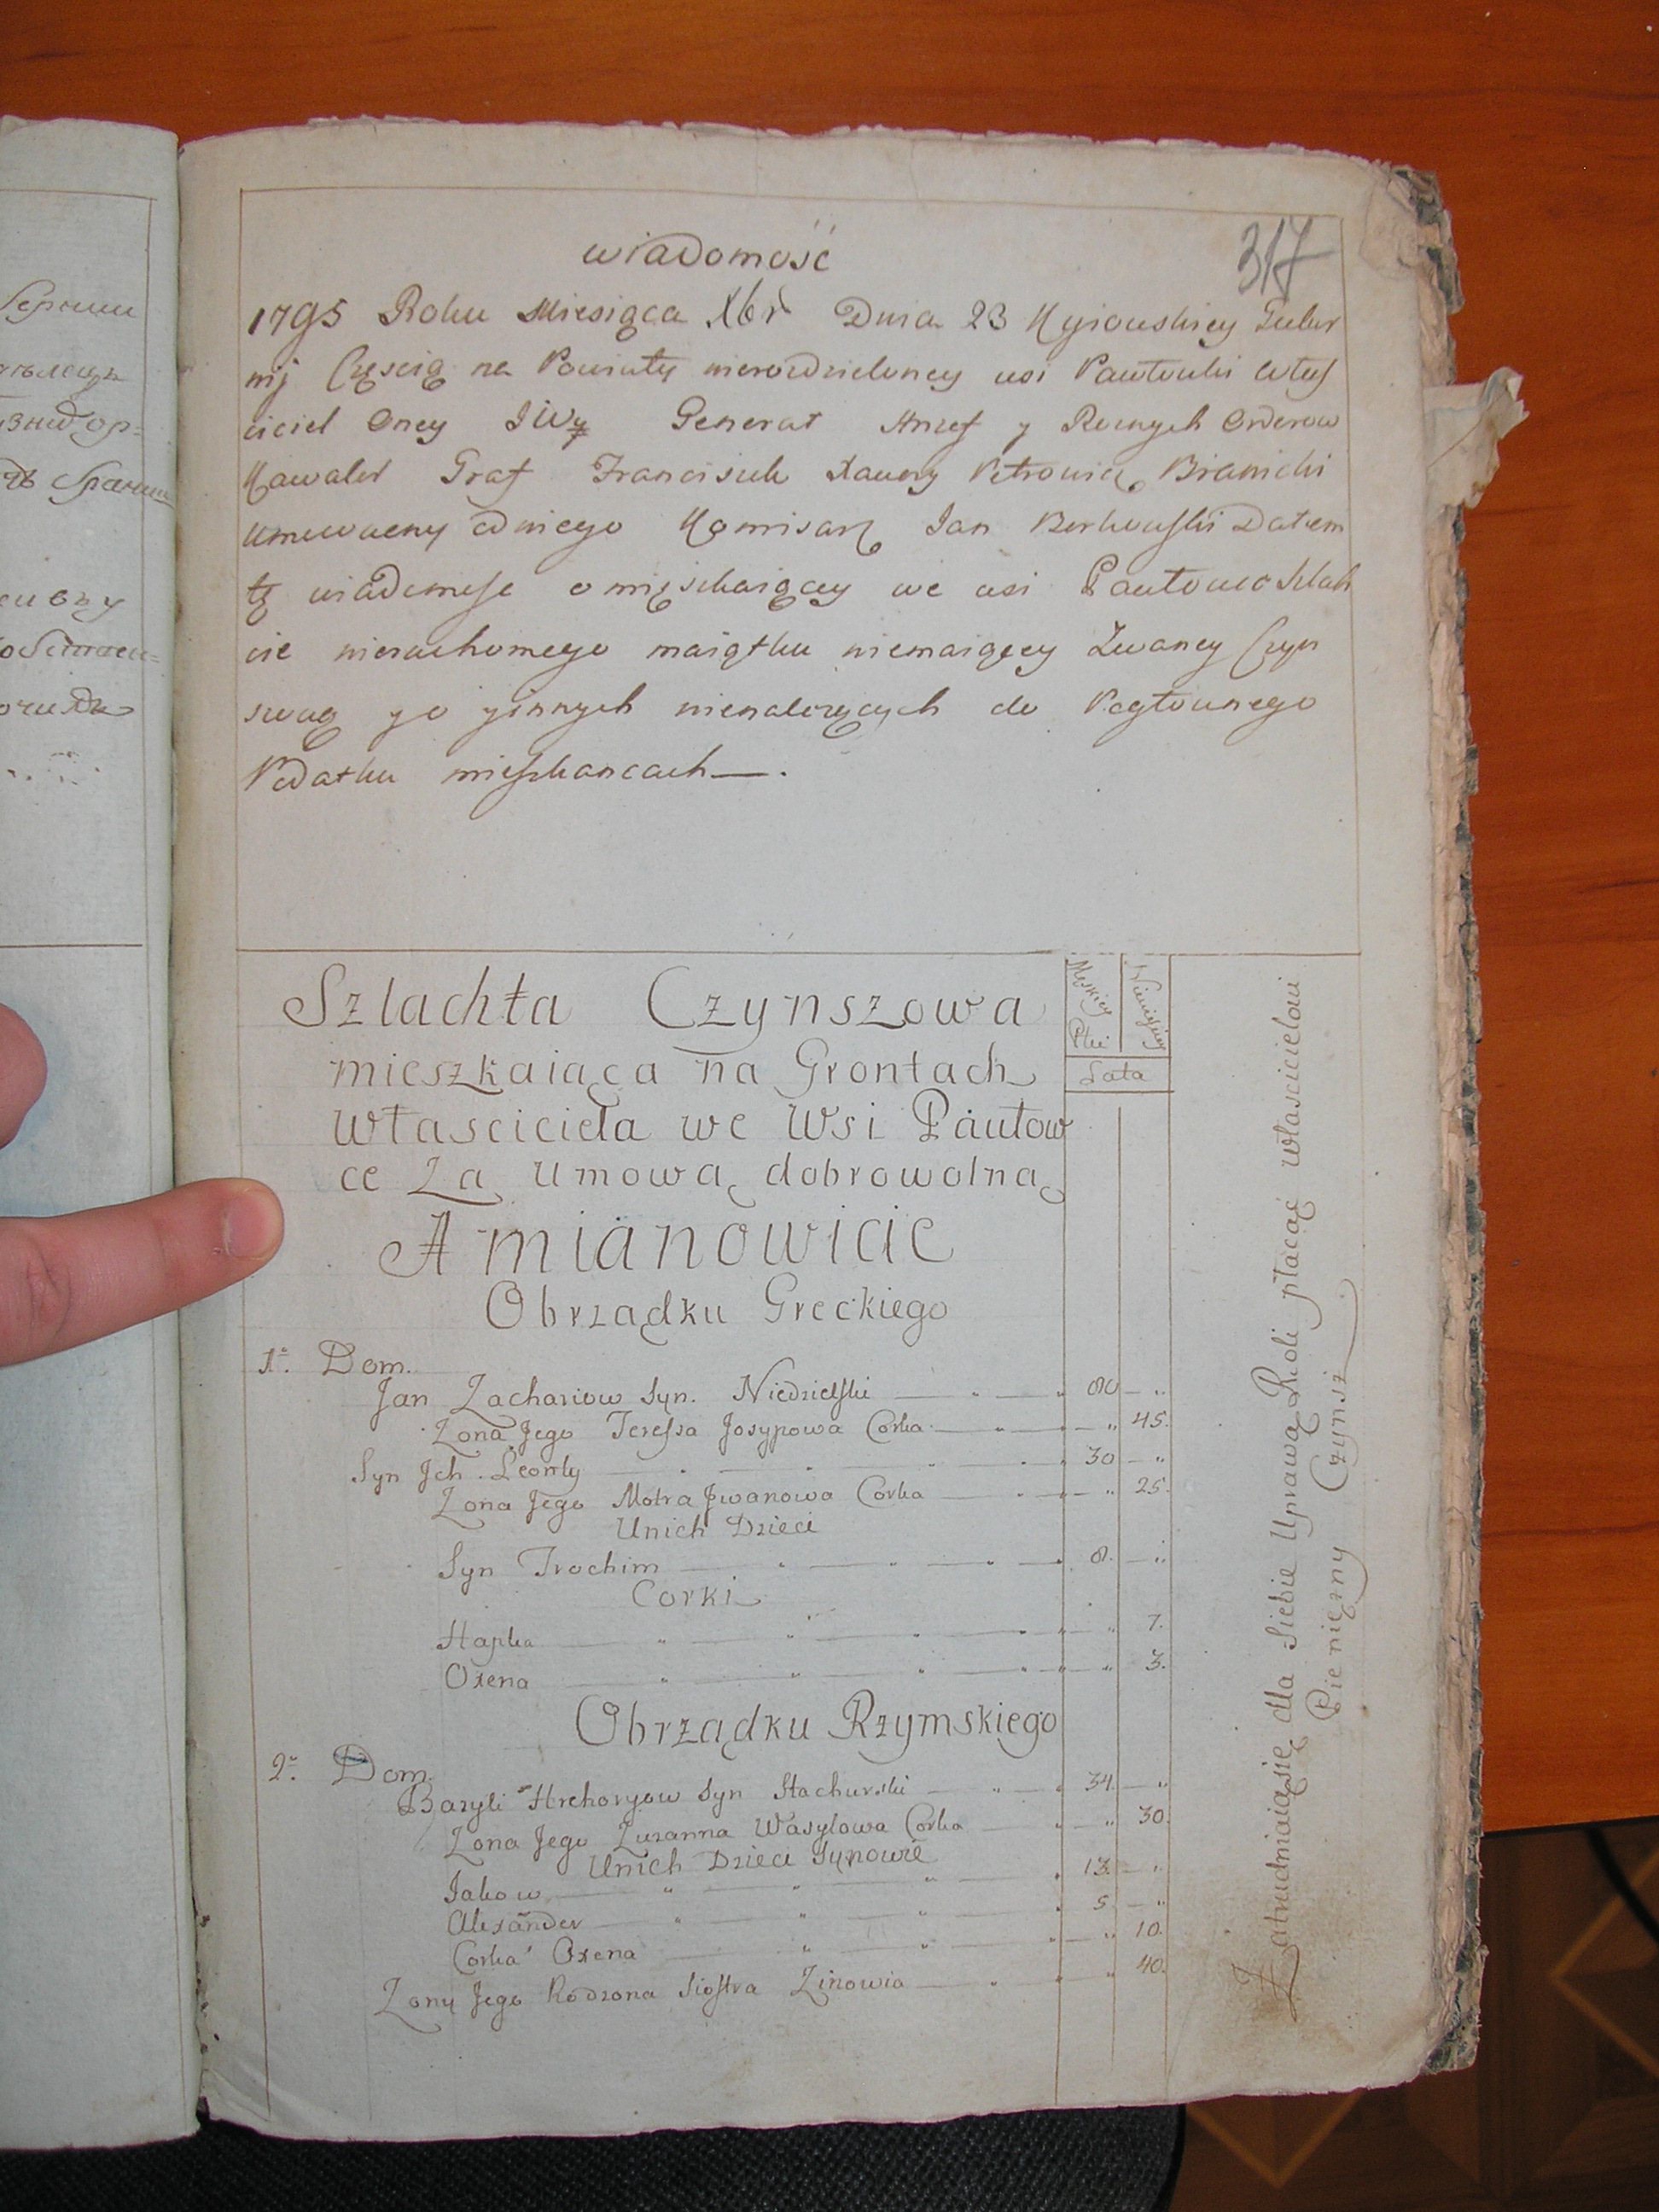 317
wiadomość
1795 Roku Miesiąca Xbr Dnia 23 Kyiowskiey Guber
nij Częścią na Powiaty nierozdzieloney wsi Pawłowki Włas
ciciel Oney JW Generał Anszef y Roznych Orderow
Kawaler Graf Franciszek Xawery Petrowicz Branicki
Umocowany od niego Komisarz Jan Borkowski Dałem
tę wiadomość o mięszkaiącey we wsi Pawłowce Szlah
cie nieruchomego maiątku niemaiącey Zwaney Czyn
szową y o ynnych nienależących do Pogłownego
Podatku mieszkancach
Szlachta Czynszowa
mieszkaiąca na Grontach
Własciciela we Wsi Pawłow
ce Za Umową dobrowolną
A mianowicie
Obrządku Greckiego
Męskiey Płci
Lata
1. Dom.
Jan Zachariow Syn. Niedzielski 80
Zona Jego Teressa Josypowa Corka 45.
Syn Jch. Leonty 30
Zona Jego Motra Jwanowa Corka 25.
Unich Dzieci
Syn Trochim 8.
Corki
Hapka 7.
Oxena 3.
Obrządku Rzymskiego
2. Dom.
Bazyli Hrehoryow Syn Stachurski 34.
Zona Jego Zuzanna Wasylowa Corka 30.
Unich Dzieci Synowie
Jakow 13.
Alexander 5
Corka Oxena 10.
Zony Jego Rodzona Siostra Zinowia 40.
Zatrudniaiąsię dla Siebie Uprawą Roli płacąc włascicielowi
Pieniężny Czynsz